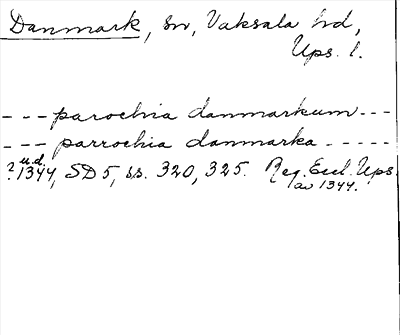 Danmark, sn, Vaksala hd,
Ups. l.
---parochia danmarkum---
---parrochia danmarka-----
u.d.
?1344, SD5, ss. 320, 325. Reg. Eccl. Ups.
av 1344.